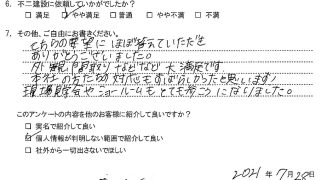 6. 不二建設に依頼していかがでしたか?
□ 満足 ☑ やや満足 □ 普通 □ やや不満 □ 不満
7. その他、ご自由にお書きください。
こちらの要望にほぼ答えていただき
ありがとうございました。
外観、間取りなどなど大満足です
本社の方たちの対応もすばらしかったと思います!
現場見学会やショールームもとても参考になりました。
このアンケートの内容を他のお客様に紹介して良いですか?
□ 実名で紹介して良い
☑ 個人情報が判明しない範囲で紹介して良い
□ 社外から一切出さないでほしい
2021年7月28日